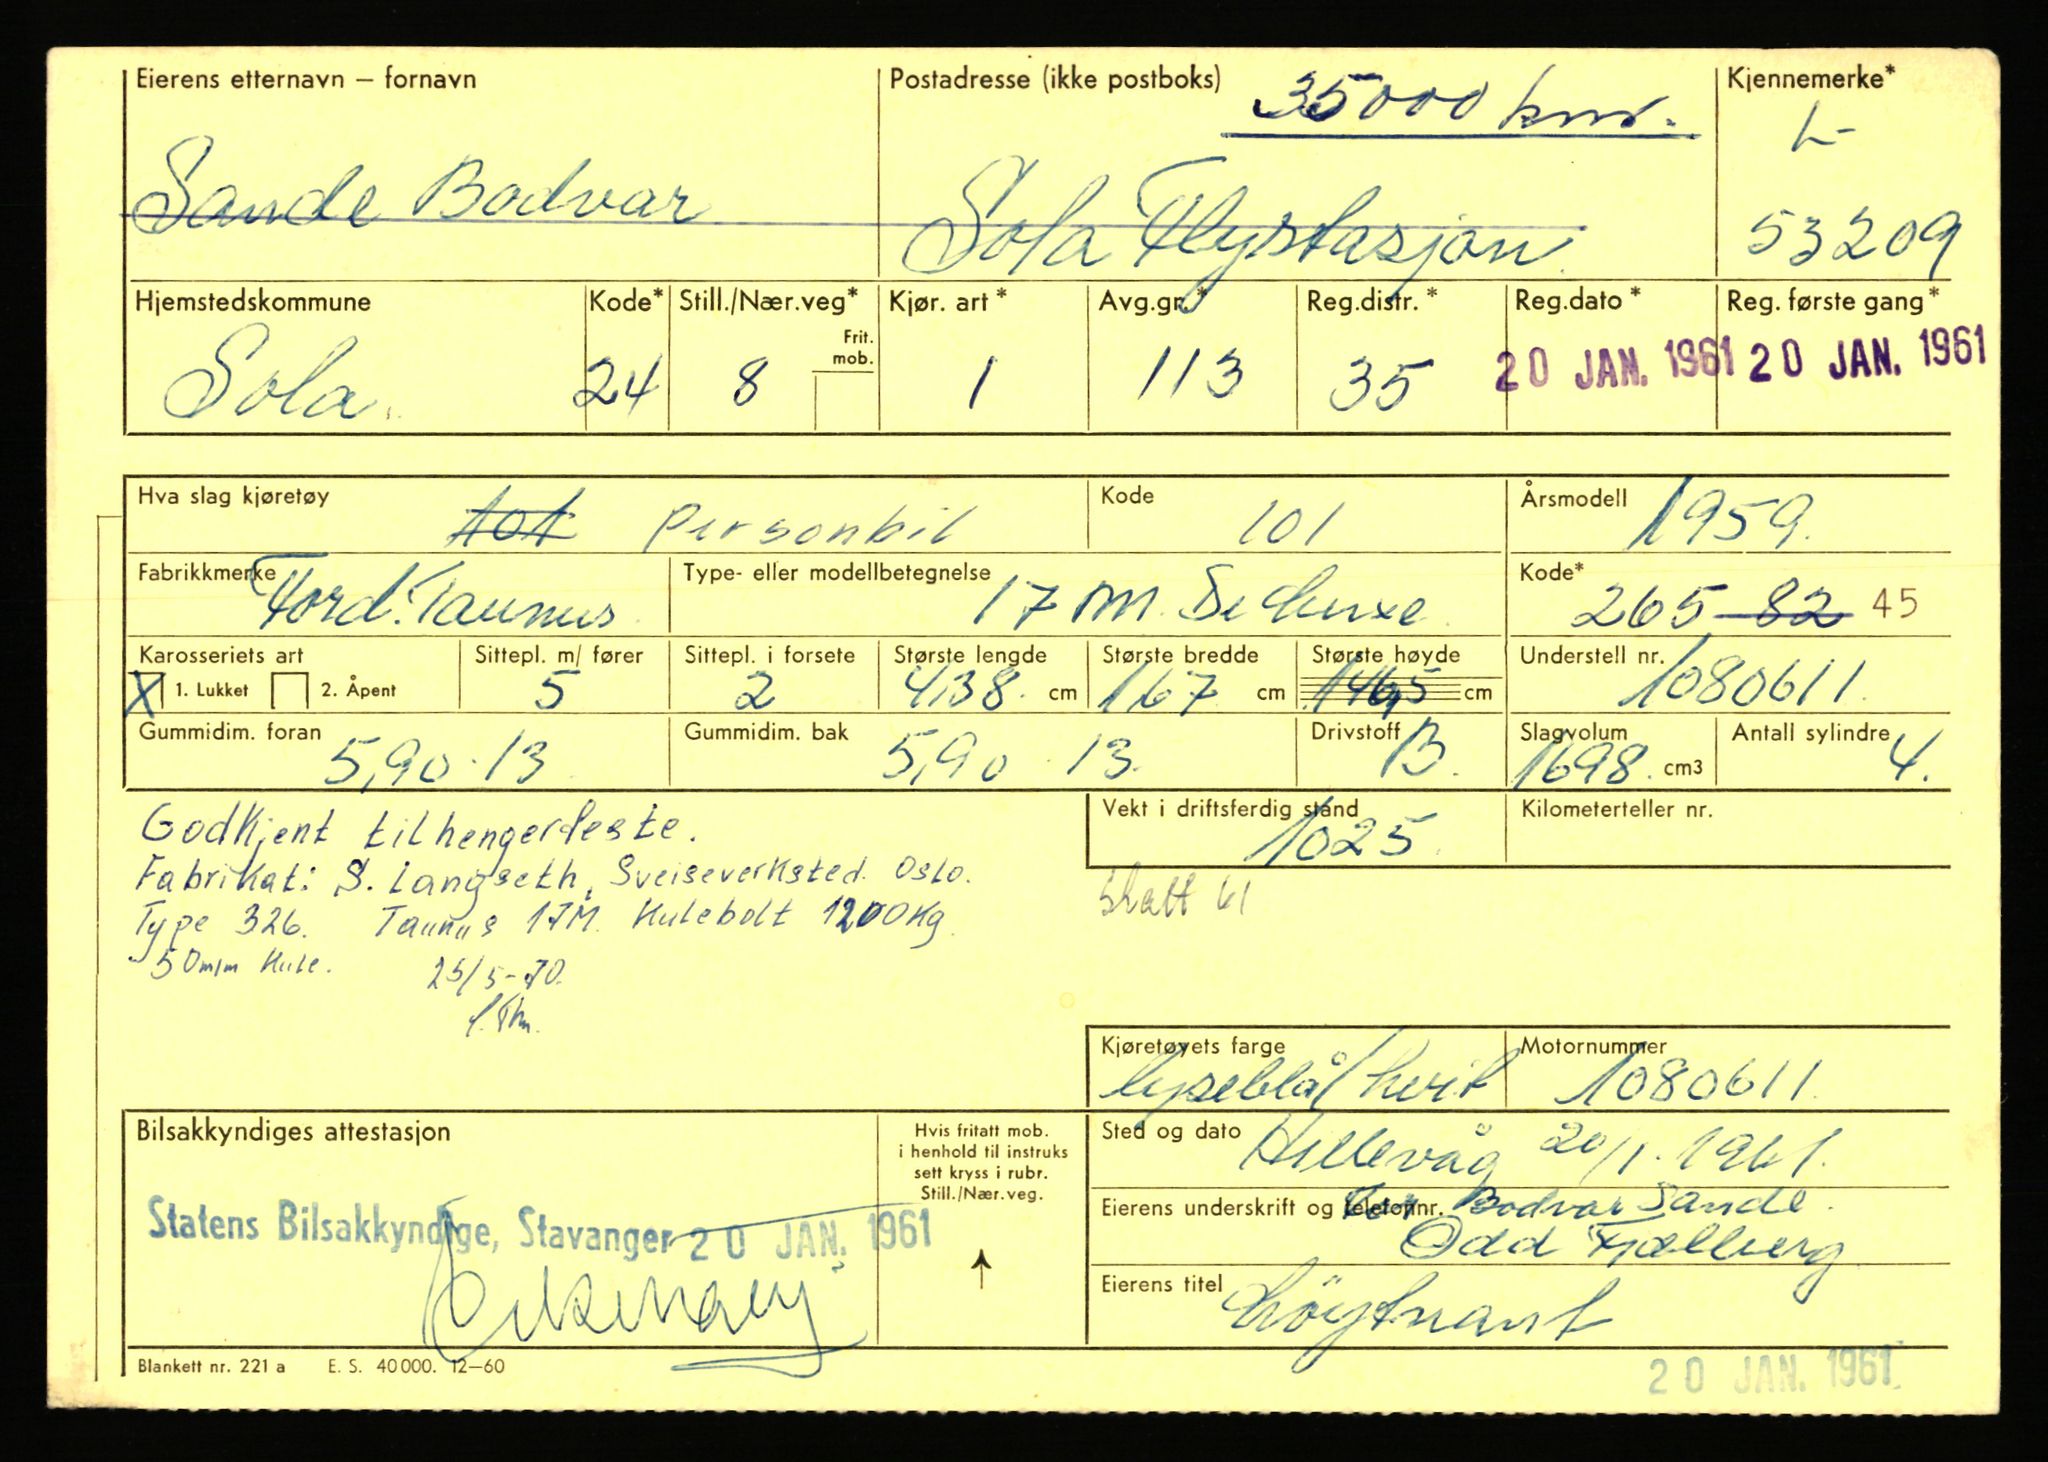 Eierens etternavn – fornavn
Sande Bodvar
Postadresse (ikke postboks)
35000 km.
Sola Flystasjon
Kjennemerke*
L-
53209
Hjemstedskommune
Sola.
Kode*
24
Still./Nær.veg*
8
Frit.
mob.
Kjør. art*
1
Avg.gr.*
113
Reg.distr.*
35
Reg.dato*
20 JAN. 1961
Reg. første gang*
20 JAN. 1961
Hva slag kjøretøy
Personbil
Kode
101
Årsmodell
1959.
Fabrikkmerke
Ford. Taunus
Type- eller modellbetegnelse
17 M. De Luxe
Kode*
265 - 82 45
Karosseriets art
X 1. Lukket 2. Åpent
Sittepl. m/ fører
5
Sittepl. i forsete
2
Største lengde
438 cm
Største bredde
167 cm
Største høyde
146,5 cm
Understell nr.
1080611.
Gummidim. foran
5,90 · 13
Gummidim. bak
5,90 · 13.
Drivstoff
B.
Slagvolum
1698. cm3
Antall sylindre
4.
Godkjent tilhengerfeste.
Fabrikat: S. Langseth, Sveiseverksted. Oslo.
Type 326. Taunus 17M. Kulebolt 1200 Kg
50 m/m Kule. 25/5-70.
Vekt i driftsferdig stand
1025.
Kilometerteller nr.
Skatt 61
Kjøretøyets farge
lyseblå/hvit
Motornummer
1080611.
Bilsakkyndiges attestasjon
Statens Bilsakkyndige, Stavanger 20 JAN. 1961
Hvis fritatt mob.
i henhold til instruks
sett kryss i rubr.
Still./Nær.veg.
Sted og dato
Hillevåg 20/1. 1961.
Eierens underskrift og telefonnr.
for Bodvar Sande.
Odd Fjælberg
Eierens titel
Löytnant
Blankett nr. 221 a E. S. 40 000. 12–60
20 JAN. 1961